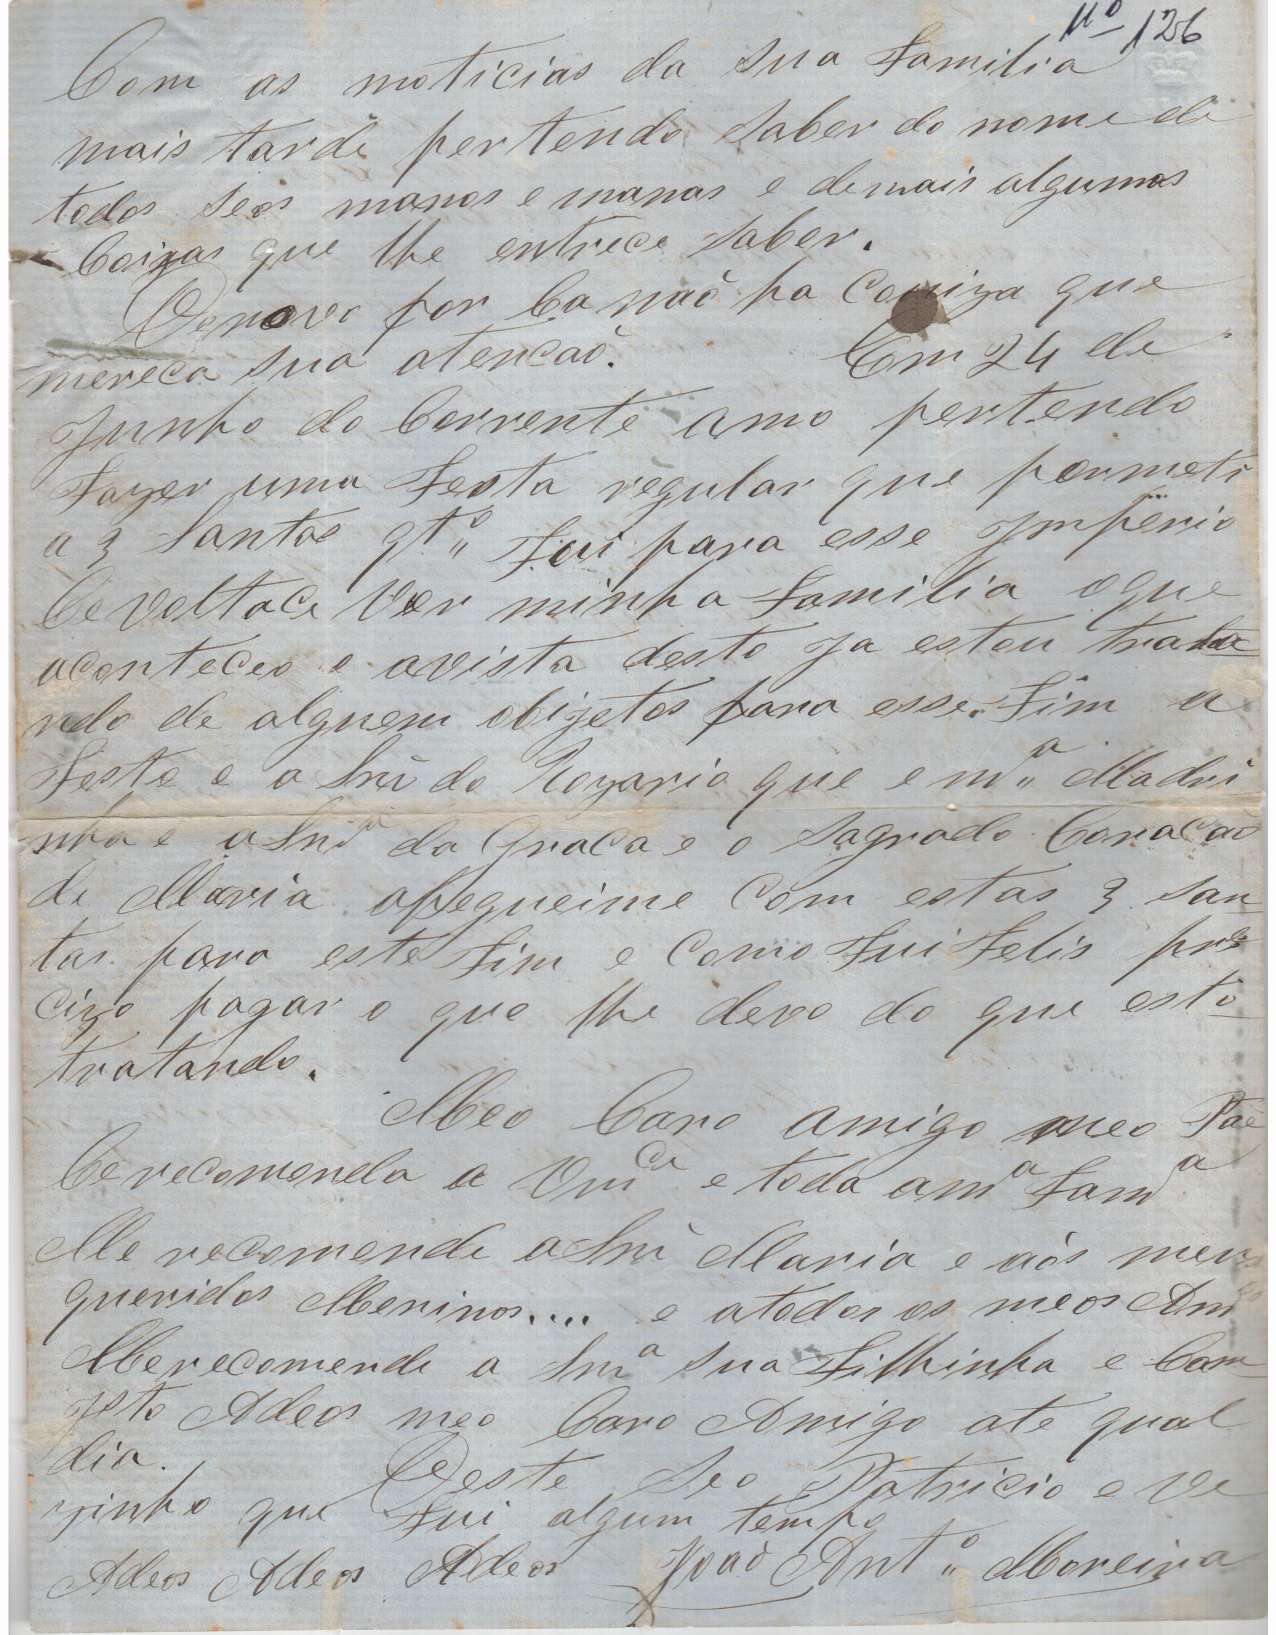 Nº 126
Com as noticias da sua Familia
mais tarde pertendo Saber do nome de
todos Seos manos e manas e demais algumas
Coizas que lhe entrece Saber.
De novo por Ca naõ ha Couiza que
mereca sua atencaõ. Em 24 de
Junho do Corrente anno pertendo
Fazer uma Festa regular que permeti
a 3 Santos qtº Fui para esse Imperio
Ce voltace Ver minha Familia oque
aconteceo e avista desto Ja estou trata
ndo de alguem obijetos para esse Fim a
Festa e a Snrª do Rozario que e mª Madri
nha e a Snrª da Graca e o Sagrado Coracaõ
de Maria apegueime Com estas 3 San
tas para este Fim e Como Fui Felis pre
cizo pagar o que lhe devo do que esto
tratando.
Meo Caro amigo meo Pae
Ce recomenda a Vmce e toda a mª Famª
Me recomende a Snrª Maria e aós meus
queridos Meninos.... e atodos os meos Am
Me recomende a Snrª sua Filhinha e Com
Isto Adeos meo Caro Amigo ate qual
dia.
Deste Seo Patricio e Ve
zinho que Fui algum tempo
Adeos Adeos Adeos Joaõ Antº Moreira